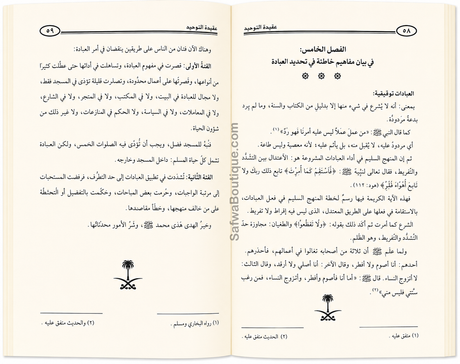 ٥٨
عقيدة التوحيد
الفصل الخامس:
في بيان مفاهيم خاطئة في تحديد العبادة
العبادات توقيفية:
بمعنى: أنه لا يُشرع في شيء منها إلا بدليل من الكتاب والسنة، وما لم يرد
بدعة مردودة.
كما قال النبي ﷺ: «من عمل عملاً ليس عليه أمرنا فهو رَدٌّ»(١).
أي مردودٌ عليه، لا يُقبل منه، بل يأثم عليه؛ لأنه معصية وليس طاعة.
ثم إن المنهج السليم في أداء العبادات المشروعة هو: الاعتدال بين التشدُّد
والتَّفريط، فقال تعالى لنبيِّه ﷺ: ﴿فَاسْتَقِمْ كَمَا أُمِرْتَ وَمَن تَابَ مَعَكَ وَلَا
تَطْغَوْا﴾ [هود: ١١٢].
فهذه الآية الكريمة فيها رسمٌ لخطة المنهج السليم في فعل العبادات،
بالاستقامة في فعلها على الطريق المعتدل، الذي ليس فيه إفراط ولا تفريط.
الشرع كما أمرت ثم أكَّد ذلك بقوله: ﴿وَلَا تَطْغَوْا﴾ والطغيان: مجاوزة حدّ
التَّشدُّد والتفريط، وهو الظلم.
ولما علم ﷺ أن ثلاثة من أصحابه تغالوا في أعمالهم،
أحدهم: أنا أصوم ولا أفطر، وقال الآخر: أنا أصلي ولا أرقد، وقال الثالث:
لا أتزوج النساء. قال ﷺ: «أما أنا فأصوم وأفطر، وأتزوج النساء، فمن رغب
سنَّتي فليس مني»(٢).
(١) متفق عليه.
(٢) والحديث متفق عليه.
عقيدة التوحيد
٥٩
وهناك الآن فئتان من الناس على طريقين ينقصان في أمر العبادة:
الفئة الأولى: قصرت في مفهوم العبادة، وتساهلت في أدائها حتى عطلت كثيرًا
من أنواعها، وقصرتها على أعمال محدودة، وتصارت قليلة تؤدى في المسجد فقط،
ولا مجال للعبادة في البيت، ولا في المكتب، ولا في المتجر، ولا في الشارع،
ولا في المعاملات، ولا في السياسة، ولا الحكم في المنازعات، ولا غير ذلك من
شؤون الحياة.
نعم للمسجد فضل، ويجب أن تُؤدَّى فيه الصلوات الخمس، ولكن العبادة
تشمل كلَّ حياة المسلم: داخل المسجد وخارجه.
الفئة الثانية: تشددت في تطبيق العبادات إلى حد التطرف، فرفعت المستحبات
إلى مرتبة الواجبات، وحرمت بعض المباحات، وحكمت بالتضليل أو التخطئة
على من خالف منهجها، وخطَّأ مقاصدها.
وخير الهدي هدي محمد ﷺ، وشرُّ الأمور محدثاتها.
(١) رواه البخاري ومسلم.
SafwaBoutique.com